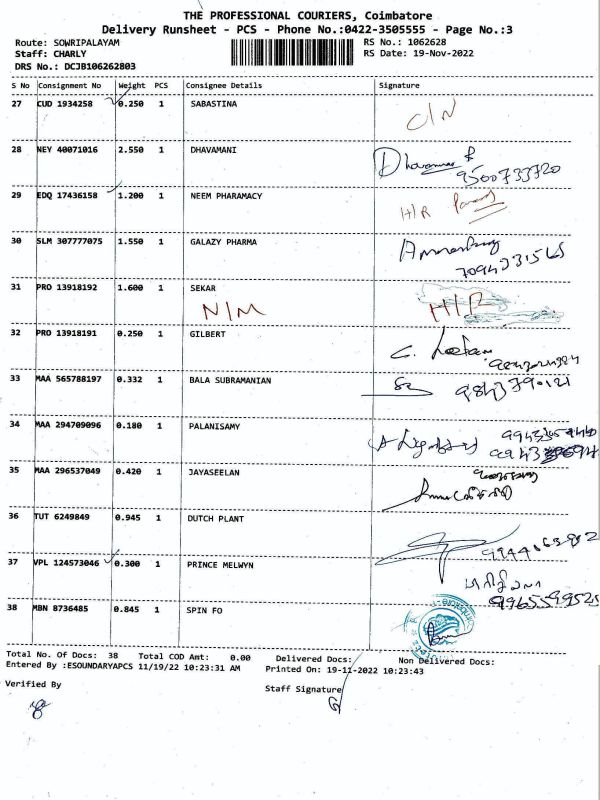 THE PROFESSIONAL COURIERS, Coimbatore
Delivery Runsheet - PCS - Phone No.:0422-3505555 - Page No.:3
Route: SOWRIPALAYAM RS No.: 1062628
Staff: CHARLY RS Date: 19-Nov-2022
DRS No.: DCJB106262803
S No Consignment No Weight PCS Consignee Details Signature
27 CUD 1934258 0.250 1 SABASTINA
C/N
28 NEY 40071016 2.550 1 DHAVAMANI
9500733720
29 EDQ 17436158 1.200 1 NEEM PHARAMACY
H/R
30 SLM 307777075 1.550 1 GALAZY PHARMA
31 PRO 13918192 1.600 1 SEKAR
N/M H/R
32 PRO 13918191 0.250 1 GILBERT
33 MAA 565788197 0.332 1 BALA SUBRAMANIAN
9843790121
34 MAA 294709096 0.180 1 PALANISAMY
35 MAA 296537049 0.420 1 JAYASEELAN
36 TUT 6249849 0.945 1 DUTCH PLANT
37 VPL 124573046 0.300 1 PRINCE MELWYN
9965599525
38 MBN 8736485 0.845 1 SPIN FO
Total No. Of Docs: 38 Total COD Amt: 0.00 Delivered Docs: Non Delivered Docs:
Entered By :ESOUNDARYAPCS 11/19/22 10:23:31 AM Printed On: 19-11-2022 10:23:43
Verified By Staff Signature